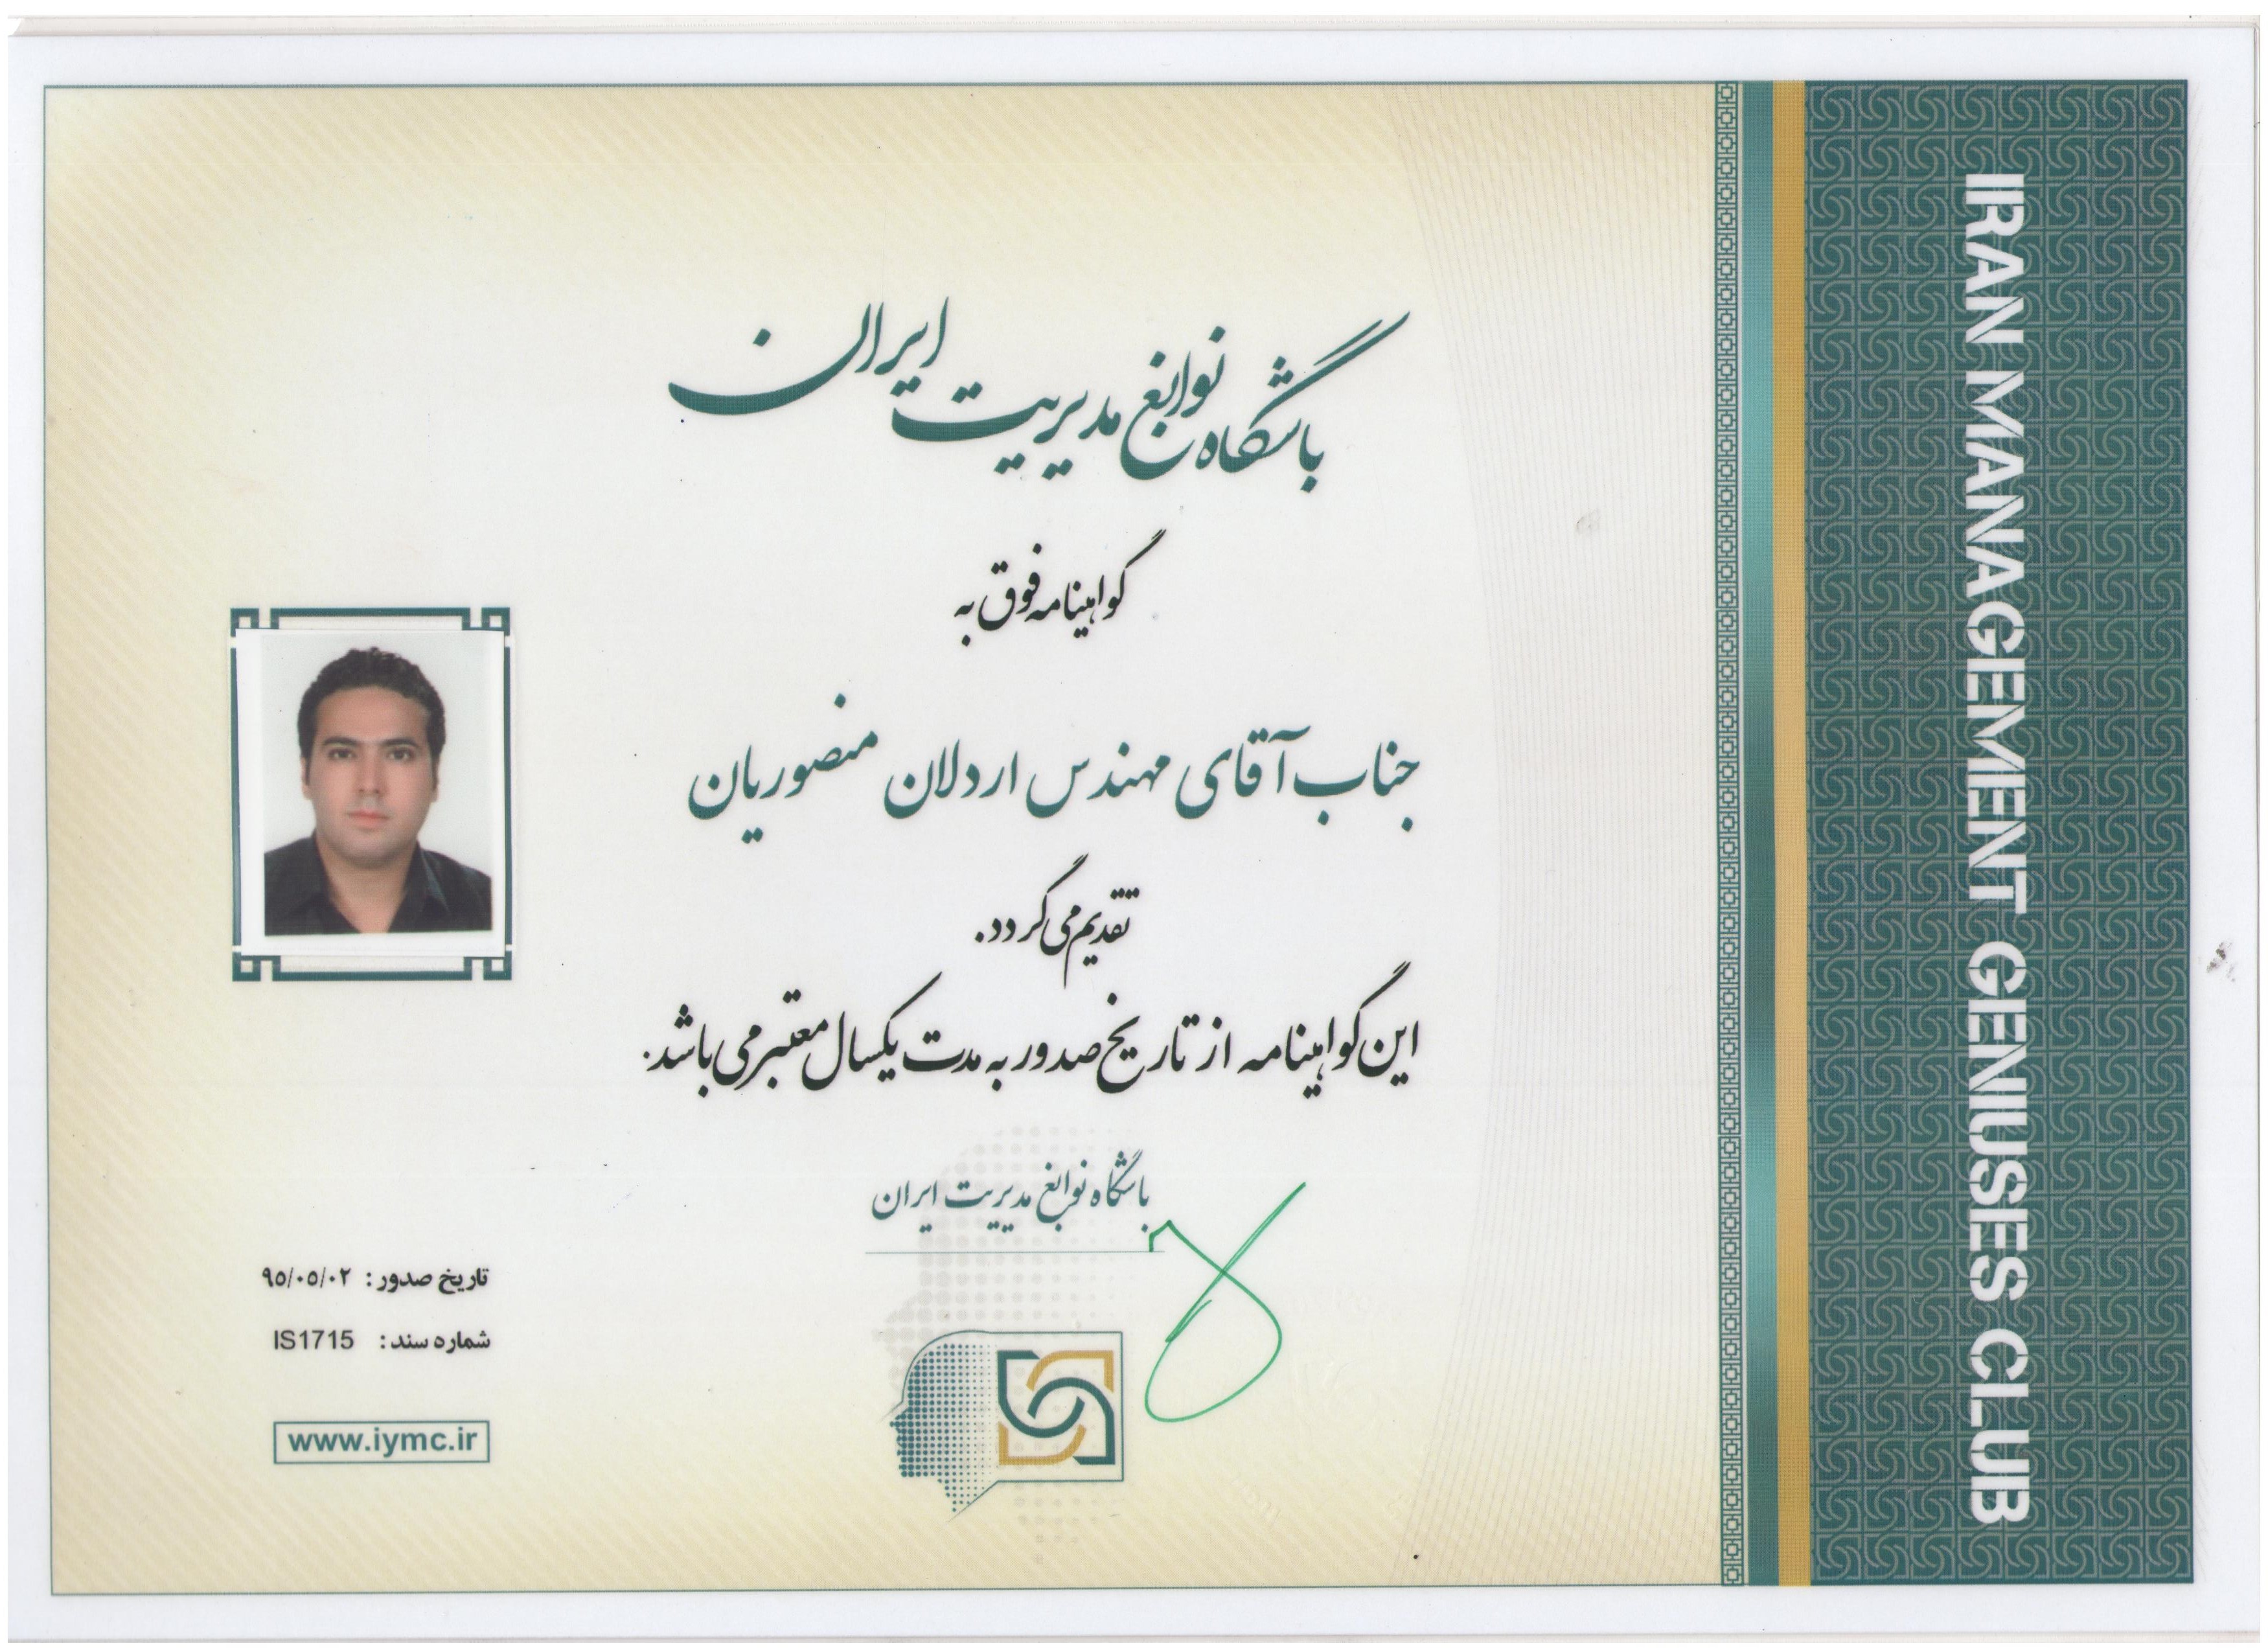 باشگاه نوابغ مدیریت ایران
گواهینامه فوق به
جناب آقای مهندس اردلان منصوریان
تقدیم می گردد.
این گواهینامه از تاریخ صدور به مدت یکسال معتبر می باشد.
باشگاه نوابغ مدیریت ایران
تاریخ صدور: ۹۵/۰۵/۰۲
شماره سند: IS1715
www.iymc.ir
IRAN MANAGEMENT GENIUSES CLUB